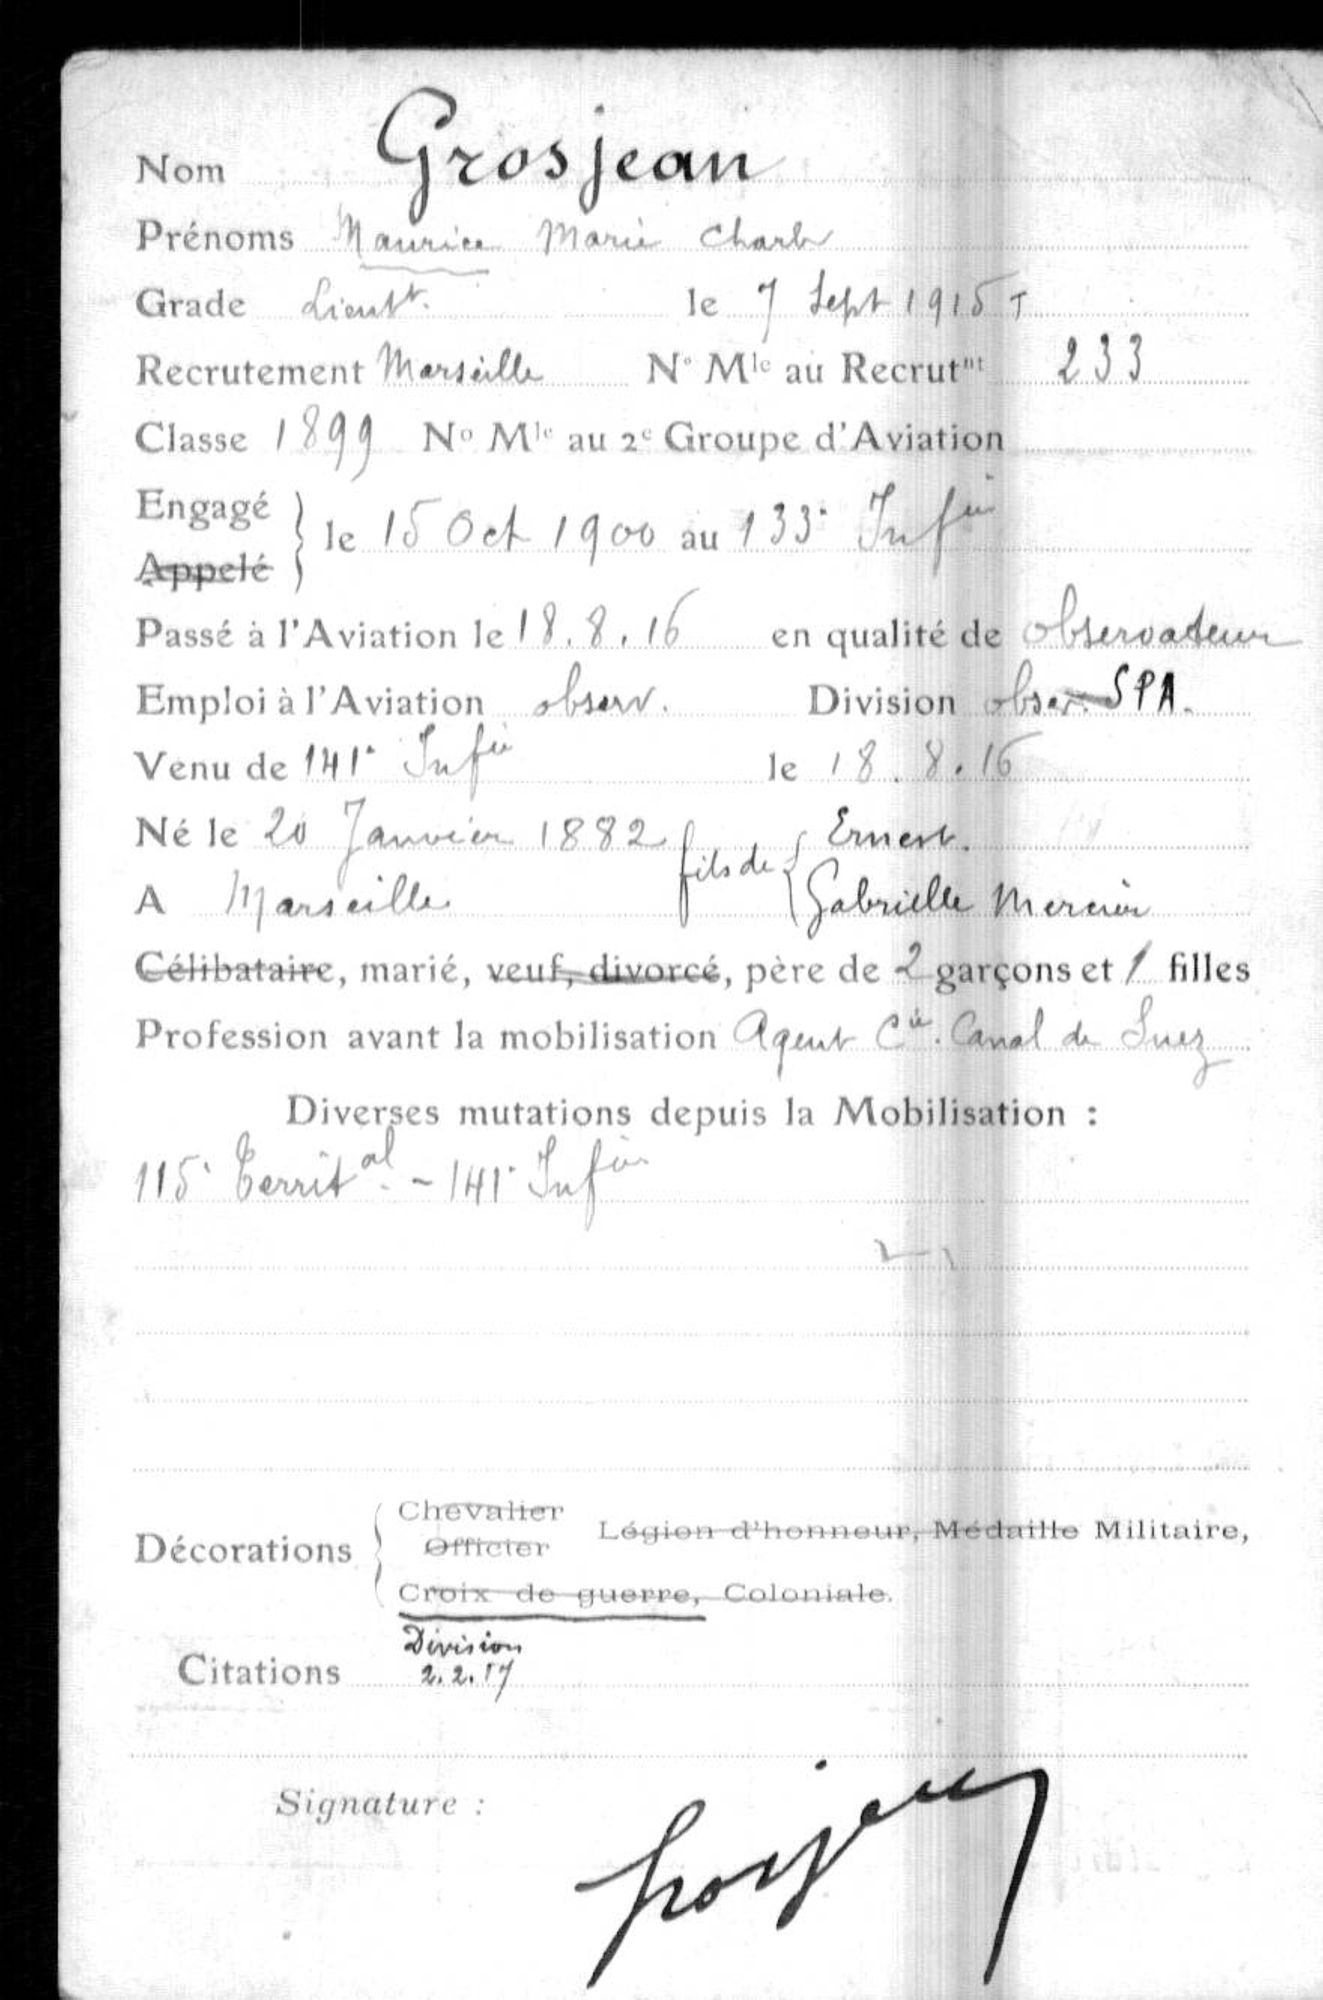 Nom Grosjean
Prénoms Maurice Marie Charles
Grade Lieutt. le 7 Sept 1915 T
Recrutement Marseille N° Mle au Recrutnt 233
Classe 1899 No Mle au 2e Groupe d'Aviation
Engagé
Appelé } le 15 Oct 1900 au 133e Infie
Passé à l'Aviation le 18.8.16 en qualité de observateur
Emploi à l'Aviation observ. Division obser. SPA.
Venu de 141e Infie le 18.8.16
Né le 20 Janvier 1882 fils de { Ernest.
A Marseille Gabrielle Mercier
Célibataire, marié, veuf, divorcé, père de 2 garçons et 1 filles
Profession avant la mobilisation Agent Cie. Canal de Suez
Diverses mutations depuis la Mobilisation :
115e Territal. - 141e Infie
Décorations { Chevalier
Officier Légion d'honneur, Médaille Militaire,
Croix de guerre, Coloniale.
Division
Citations 2.2.17
Signature :
Grosjean